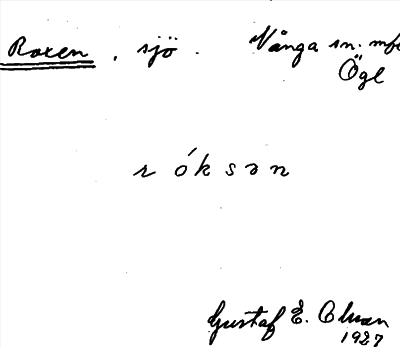 Roxen, sjö. Vånga sn. mfl
Ögl
róksən
Gustaf E. Olsson
1927